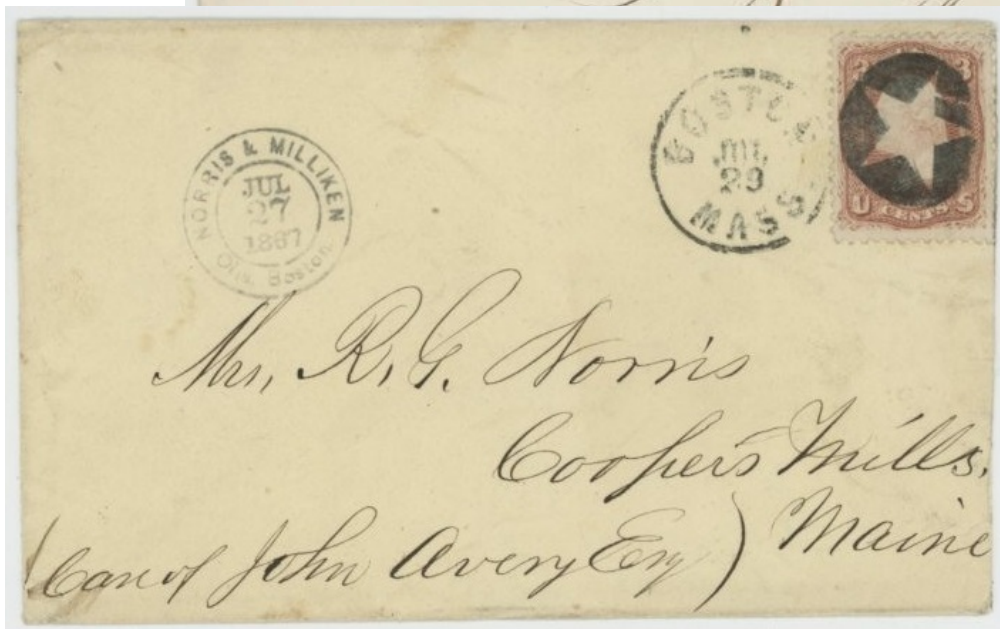 NORRIS & MILLIKEN
JUL
27
1867
Boston
BOSTON
JUL
29
MASS.
3
U CENTS S
Mrs. R. G. Norris
Coopers Mills,
Maine
(Care of John Avery Esq)